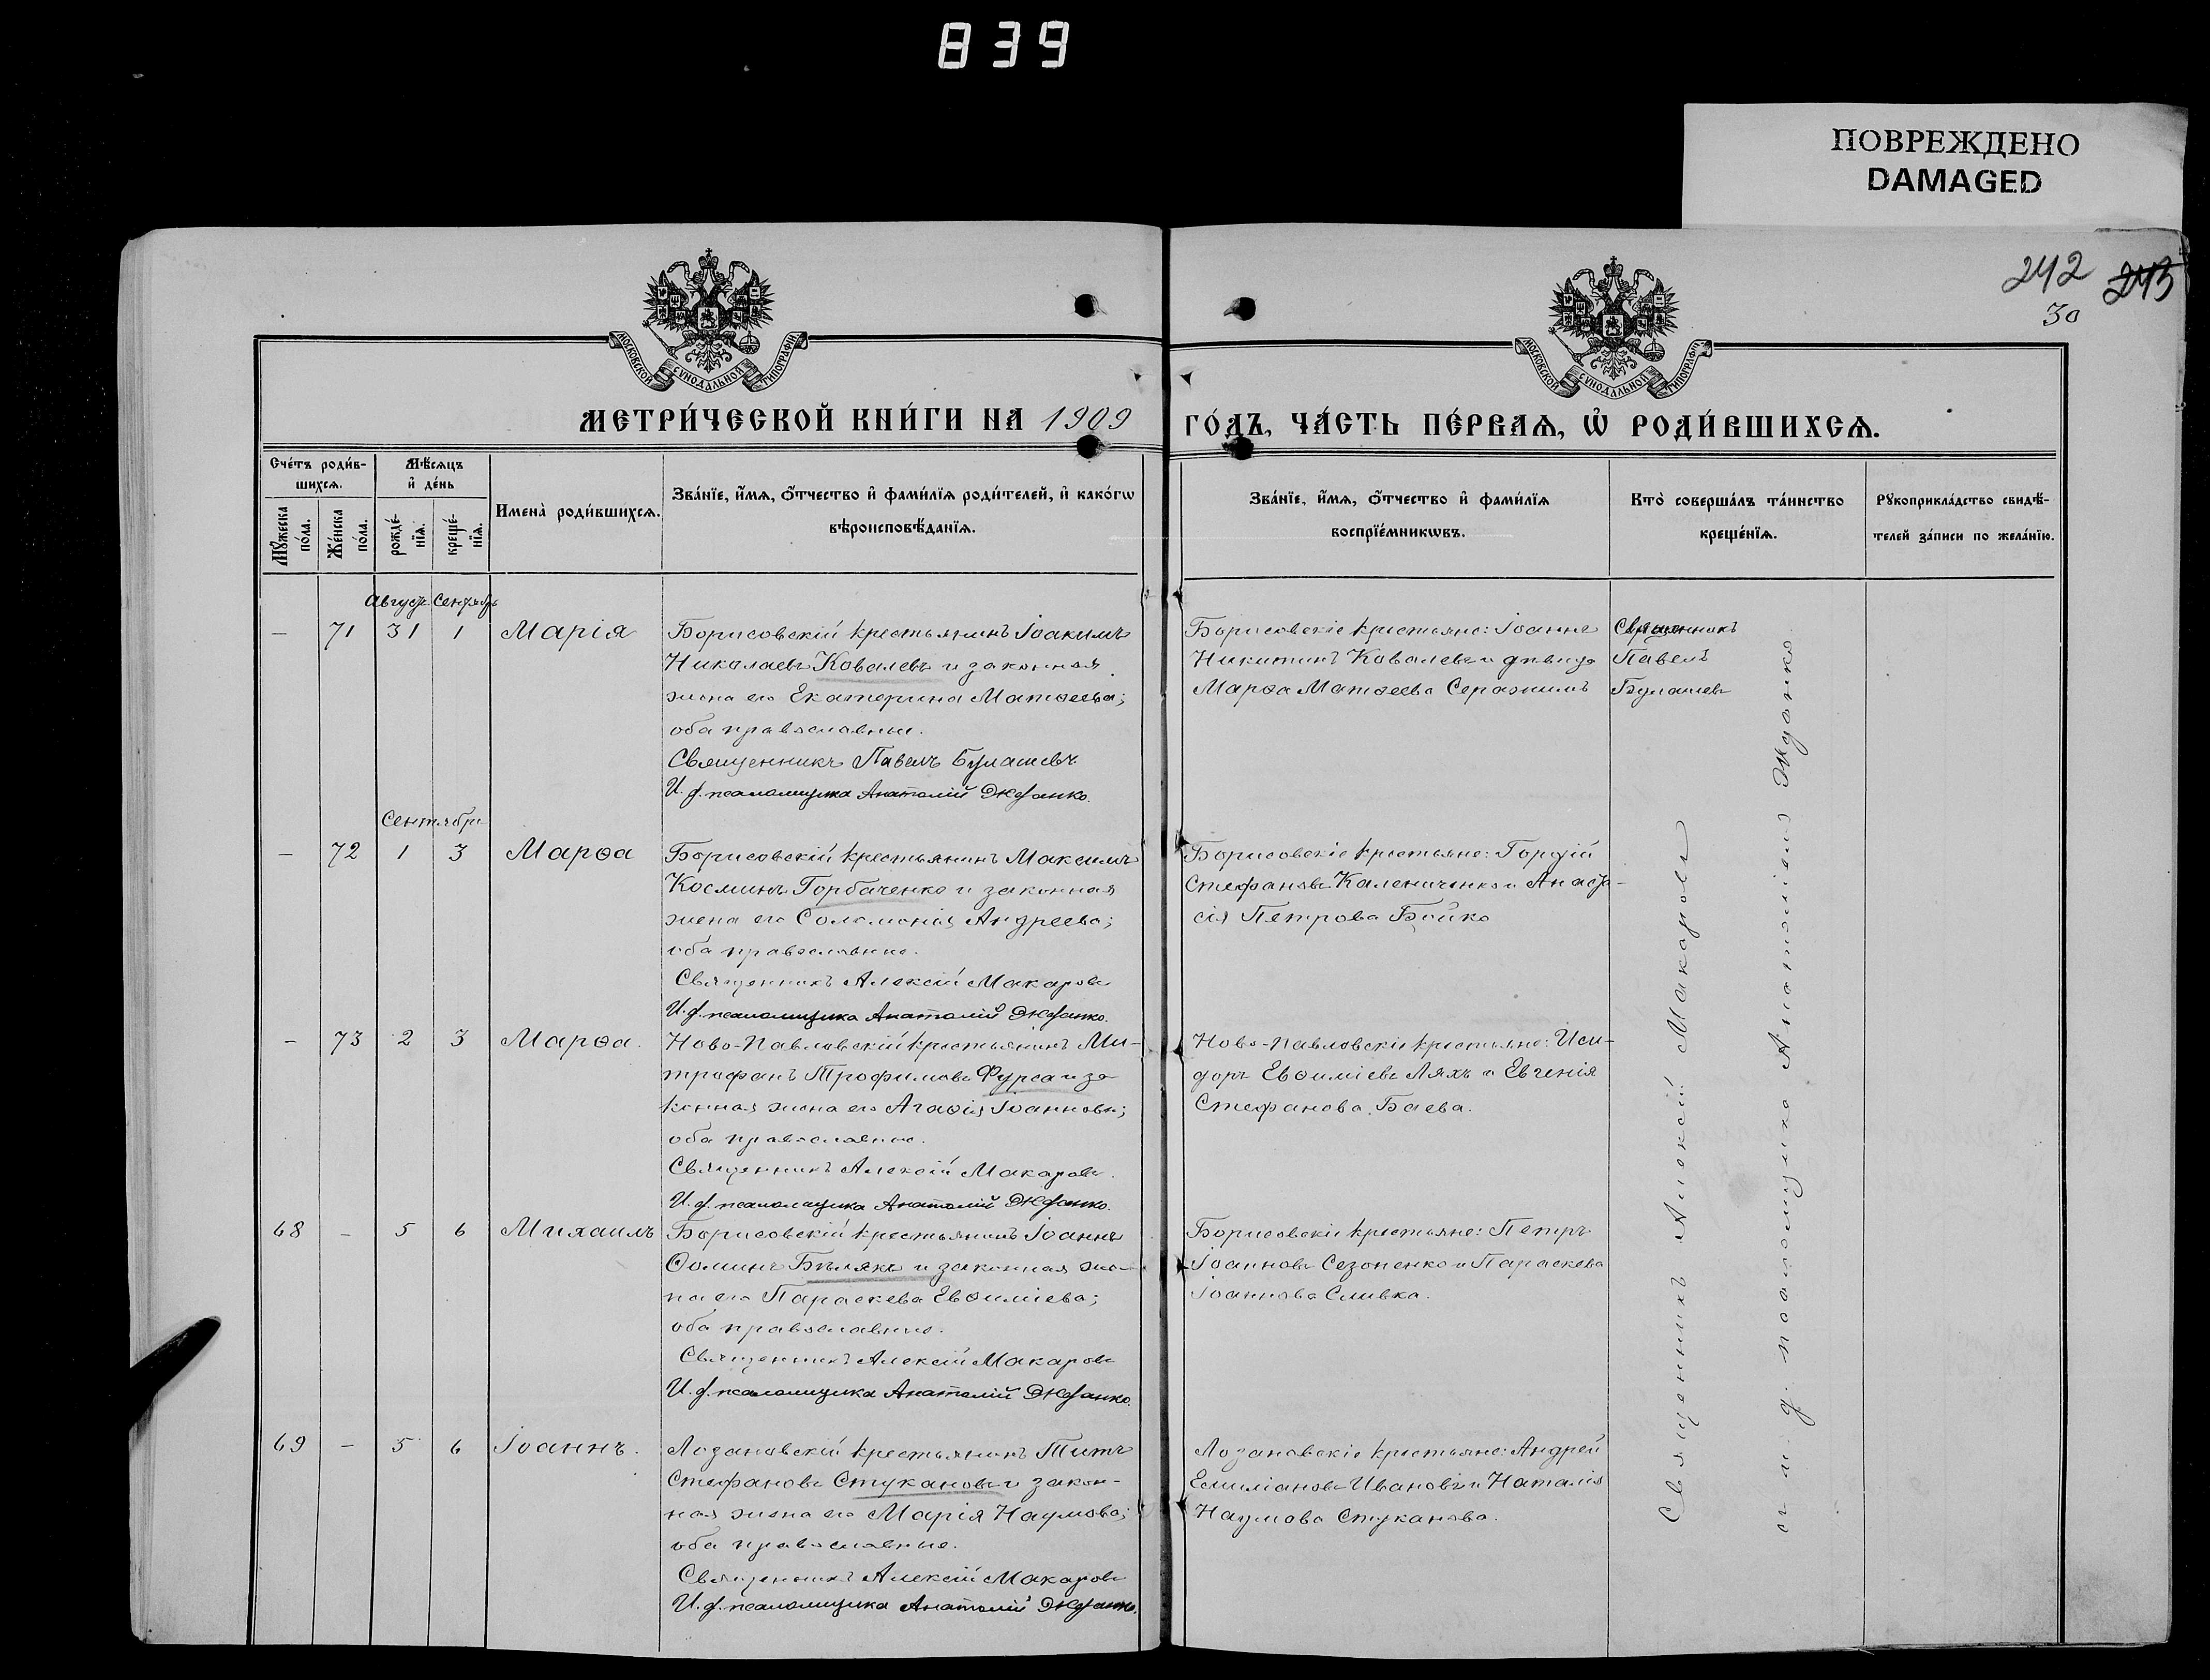 839
ПОВРЕЖДЕНО
DAMAGED
242 243
30
МОСКОВСКОЙ СѴНОДАЛЬНОЙ ТИПОГРАФІИ
МОСКОВСКОЙ СѴНОДАЛЬНОЙ ТИПОГРАФІИ
МЕТРИ́ЧЕСКОЙ КНИ́ГИ НА 1909
ГО́ДЪ, ЧА́СТЬ ПЕ́РВАѦ, Ѡ҆ РОДИ́ВШИХСѦ.
Сче́тъ роди́в-
шихсѧ.
Мѣ́сѧцъ
и҆ де́нь
Мꙋ́жеска
по́ла.
Же́нска
по́ла.
рожде́-
нїѧ.
креще́-
нїѧ.
Имена̀ роди́вшихсѧ.
Зва́нїе, и҆́мѧ, ѻ҆́тчество и҆ фами́лїѧ роди́телей, и҆ како́гѡ
вѣроисповѣ́данїѧ.
Зва́нїе, и҆́мѧ, ѻ҆́тчество и҆ фами́лїѧ
воспрїе́мникѡвъ.
Кто̀ соверша́лъ та́инство
креще́нїѧ.
Рꙋкоприкла́дство свидѣ́-
телей за́писи по жела́нїю.
Августъ Сентябрь
— 71 31 1 Марія
Борисовскій крестьянинъ Іоакимъ
Николаевъ Ковалевъ и законная
жена его Екатерина Матѳеева;
оба православные.
Священникъ Павелъ Булашевъ
И. д. псаломщика Анатолій Жданко.
Борисовскіе крестьяне: Іоаннъ
Никитинъ Ковалевъ и дѣвица
Марѳа Матѳеева Серажимъ
Священникъ
Павелъ
Булашевъ
Сентября
— 72 1 3 Марѳа
Борисовскій крестьянинъ Максимъ
Косминъ Горбаченко и законная
жена его Соломонія Андреева;
оба православные.
Священникъ Алексій Макаровъ
И. д. псаломщика Анатолій Жданко.
Борисовскіе крестьяне: Гордій
Стефановъ Калениченко и Анаста-
сія Петрова Бойко
— 73 2 3 Марѳа.
Ново-Павловскій крестьянинъ Ми-
трофанъ Трофимовъ Фурса и за
конная жена его Агаѳія Іоаннова;
оба православные.
Священникъ Алексій Макаровъ.
И. д. псаломщика Анатолій Жданко.
Ново-Павловскіе крестьяне: Иси-
доръ Евѳиміевъ Ляхъ и Евгенія
Стефанова Баева.
68 — 5 6 Михаилъ
Борисовскій крестьянинъ Іоаннъ
Ѳоминъ Бѣлякъ и законная же-
на его Параскева Евѳиміева;
оба православные.
Священникъ Алексій Макаровъ
И. д. псаломщика Анатолій Жданко.
Борисовскіе крестьяне: Петръ
Іоанновъ Сезоненко и Параскева
Іоаннова Сливка.
69 — 5 6 Іоаннъ.
Лозановскій крестьянинъ Титъ
Стефановъ Стукановъ и закон-
ная жена его Марія Наумова;
оба православные.
Священникъ Алексій Макаровъ
И. д. псаломщика Анатолій Жданко.
Лозановскіе крестьяне: Андрей
Емиліановъ Ивановъ и Наталія
Наумова Стуканова.
Священникъ Алексій Макаровъ
съ и. д. псаломщика Анатоліемъ Жданко